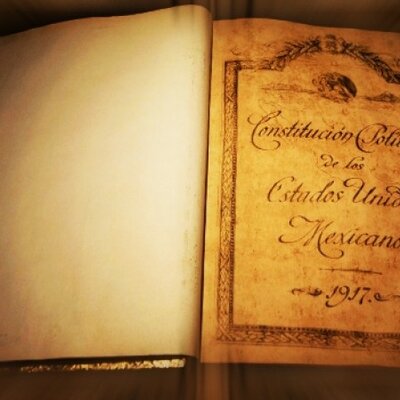 Constitución Polí
de los
Estados Unid
Mexicano
1917.